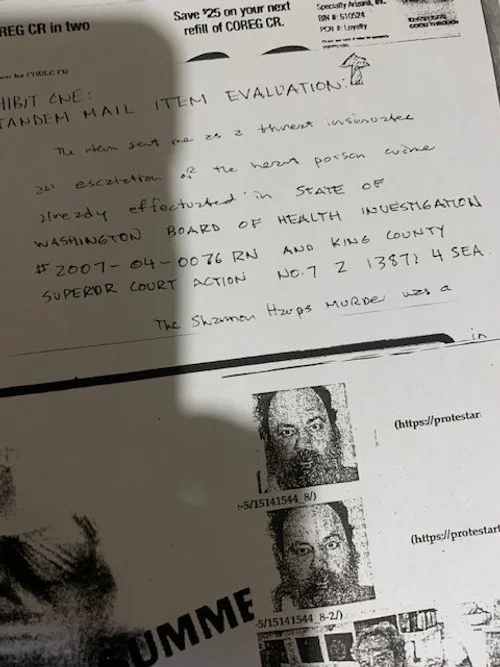 REG CR in two
Save $25 on your next
refill of COREG CR.
Specialty Arizona, Inc.
BIN #: 610524
PCN #: Loyalty
ion for COREG CR
HIBIT ONE:
TANDEM MAIL ITEM EVALUATION:
The item sent me as a threat insinuates
an escalation of the heart poison crime
already effectuated in STATE OF
WASHINGTON BOARD OF HEALTH INVESTIGATION
# 2007-04-0076 RN AND KING COUNTY
SUPERIOR COURT ACTION NO. 7 2 13871 4 SEA.
The Shannon Harps MURDER was a
in
(https://protestar
-5/15141544_8/)
(https://protestart
-5/15141544_8-2/)
SUMME